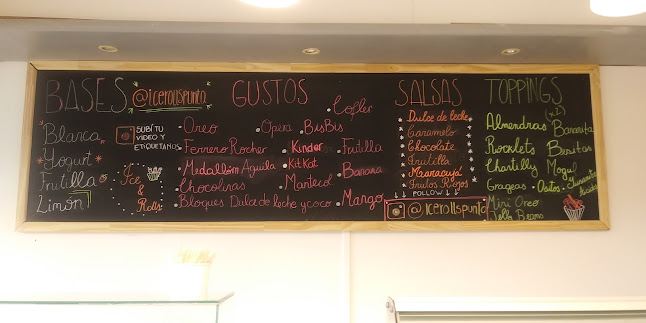 BASES
@icerollspunto
Blanca
Yogurt
Frutilla
Limón
SUBÍ TU
VIDEO Y
ETIQUETANOS
Ice
&
Rolls
GUSTOS
Cofler
Oreo
Opera
BisBis
Ferrero Rocher
Kinder
Frutilla
Medallón Aguila
KitKat
Banana
Chocolinas
Mantecol
Mango
Bloques Dulce de leche y coco
SALSAS
Dulce de leche
Caramelo
Chocolate
Frutilla
Maracuyá
Frutos Rojos
FOLLOW
@icerollspunto
TOPPINGS
(x2)
Almendras
Bananita
Rocklets
Besitos
Chantilly
Mogul
Grageas
Ositos
Mini Oreo
Jelly Beans